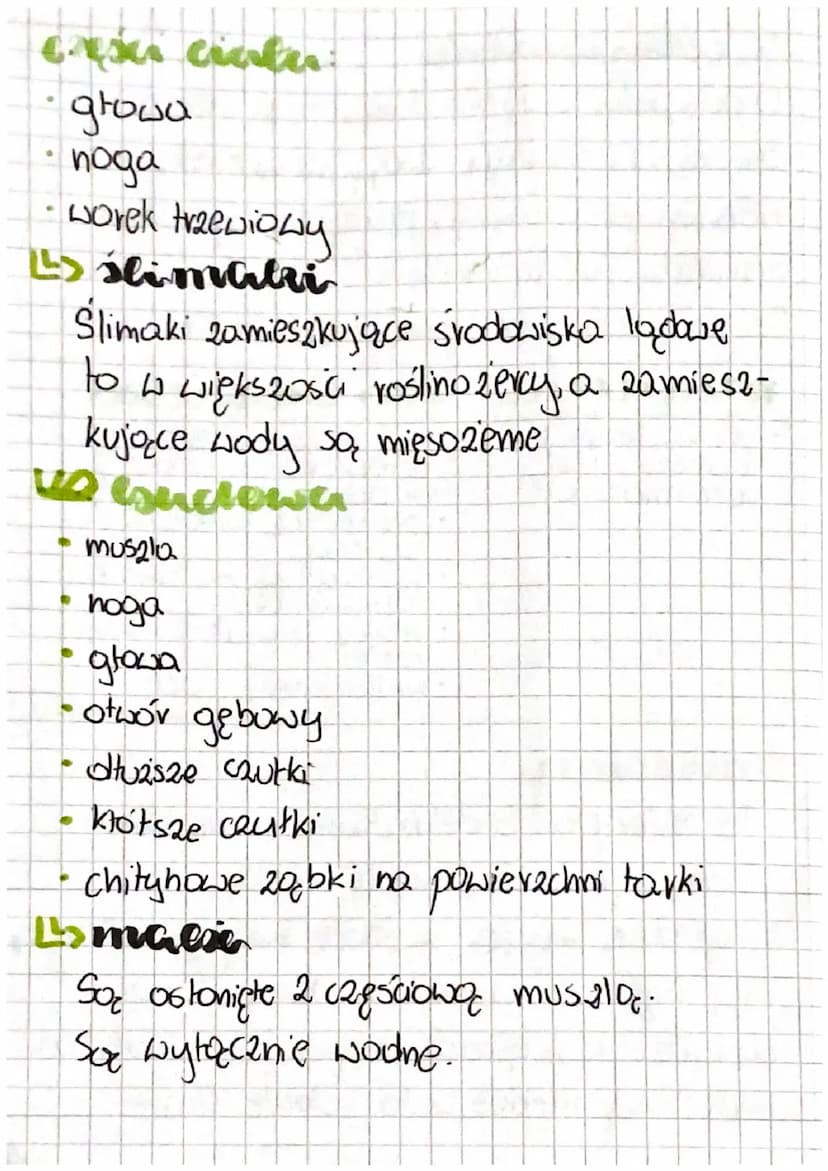 części ciała:
· głowa
· noga
· worek trzewiowy
↳ ślimaki
Ślimaki zamieszkujące środowiska lądowe
to w większości roślinożercy, a zamiesz-
kujące wody są mięsożerne
budowa
• muszla
• noga
• głowa
• otwór gębowy
• dłuższe czułki
• krótsze czułki
• chitynowe ząbki na powierzchni tarki
↳ małże
Są osłonięte 2 częściową muszlą.
Są wyłącznie wodne.